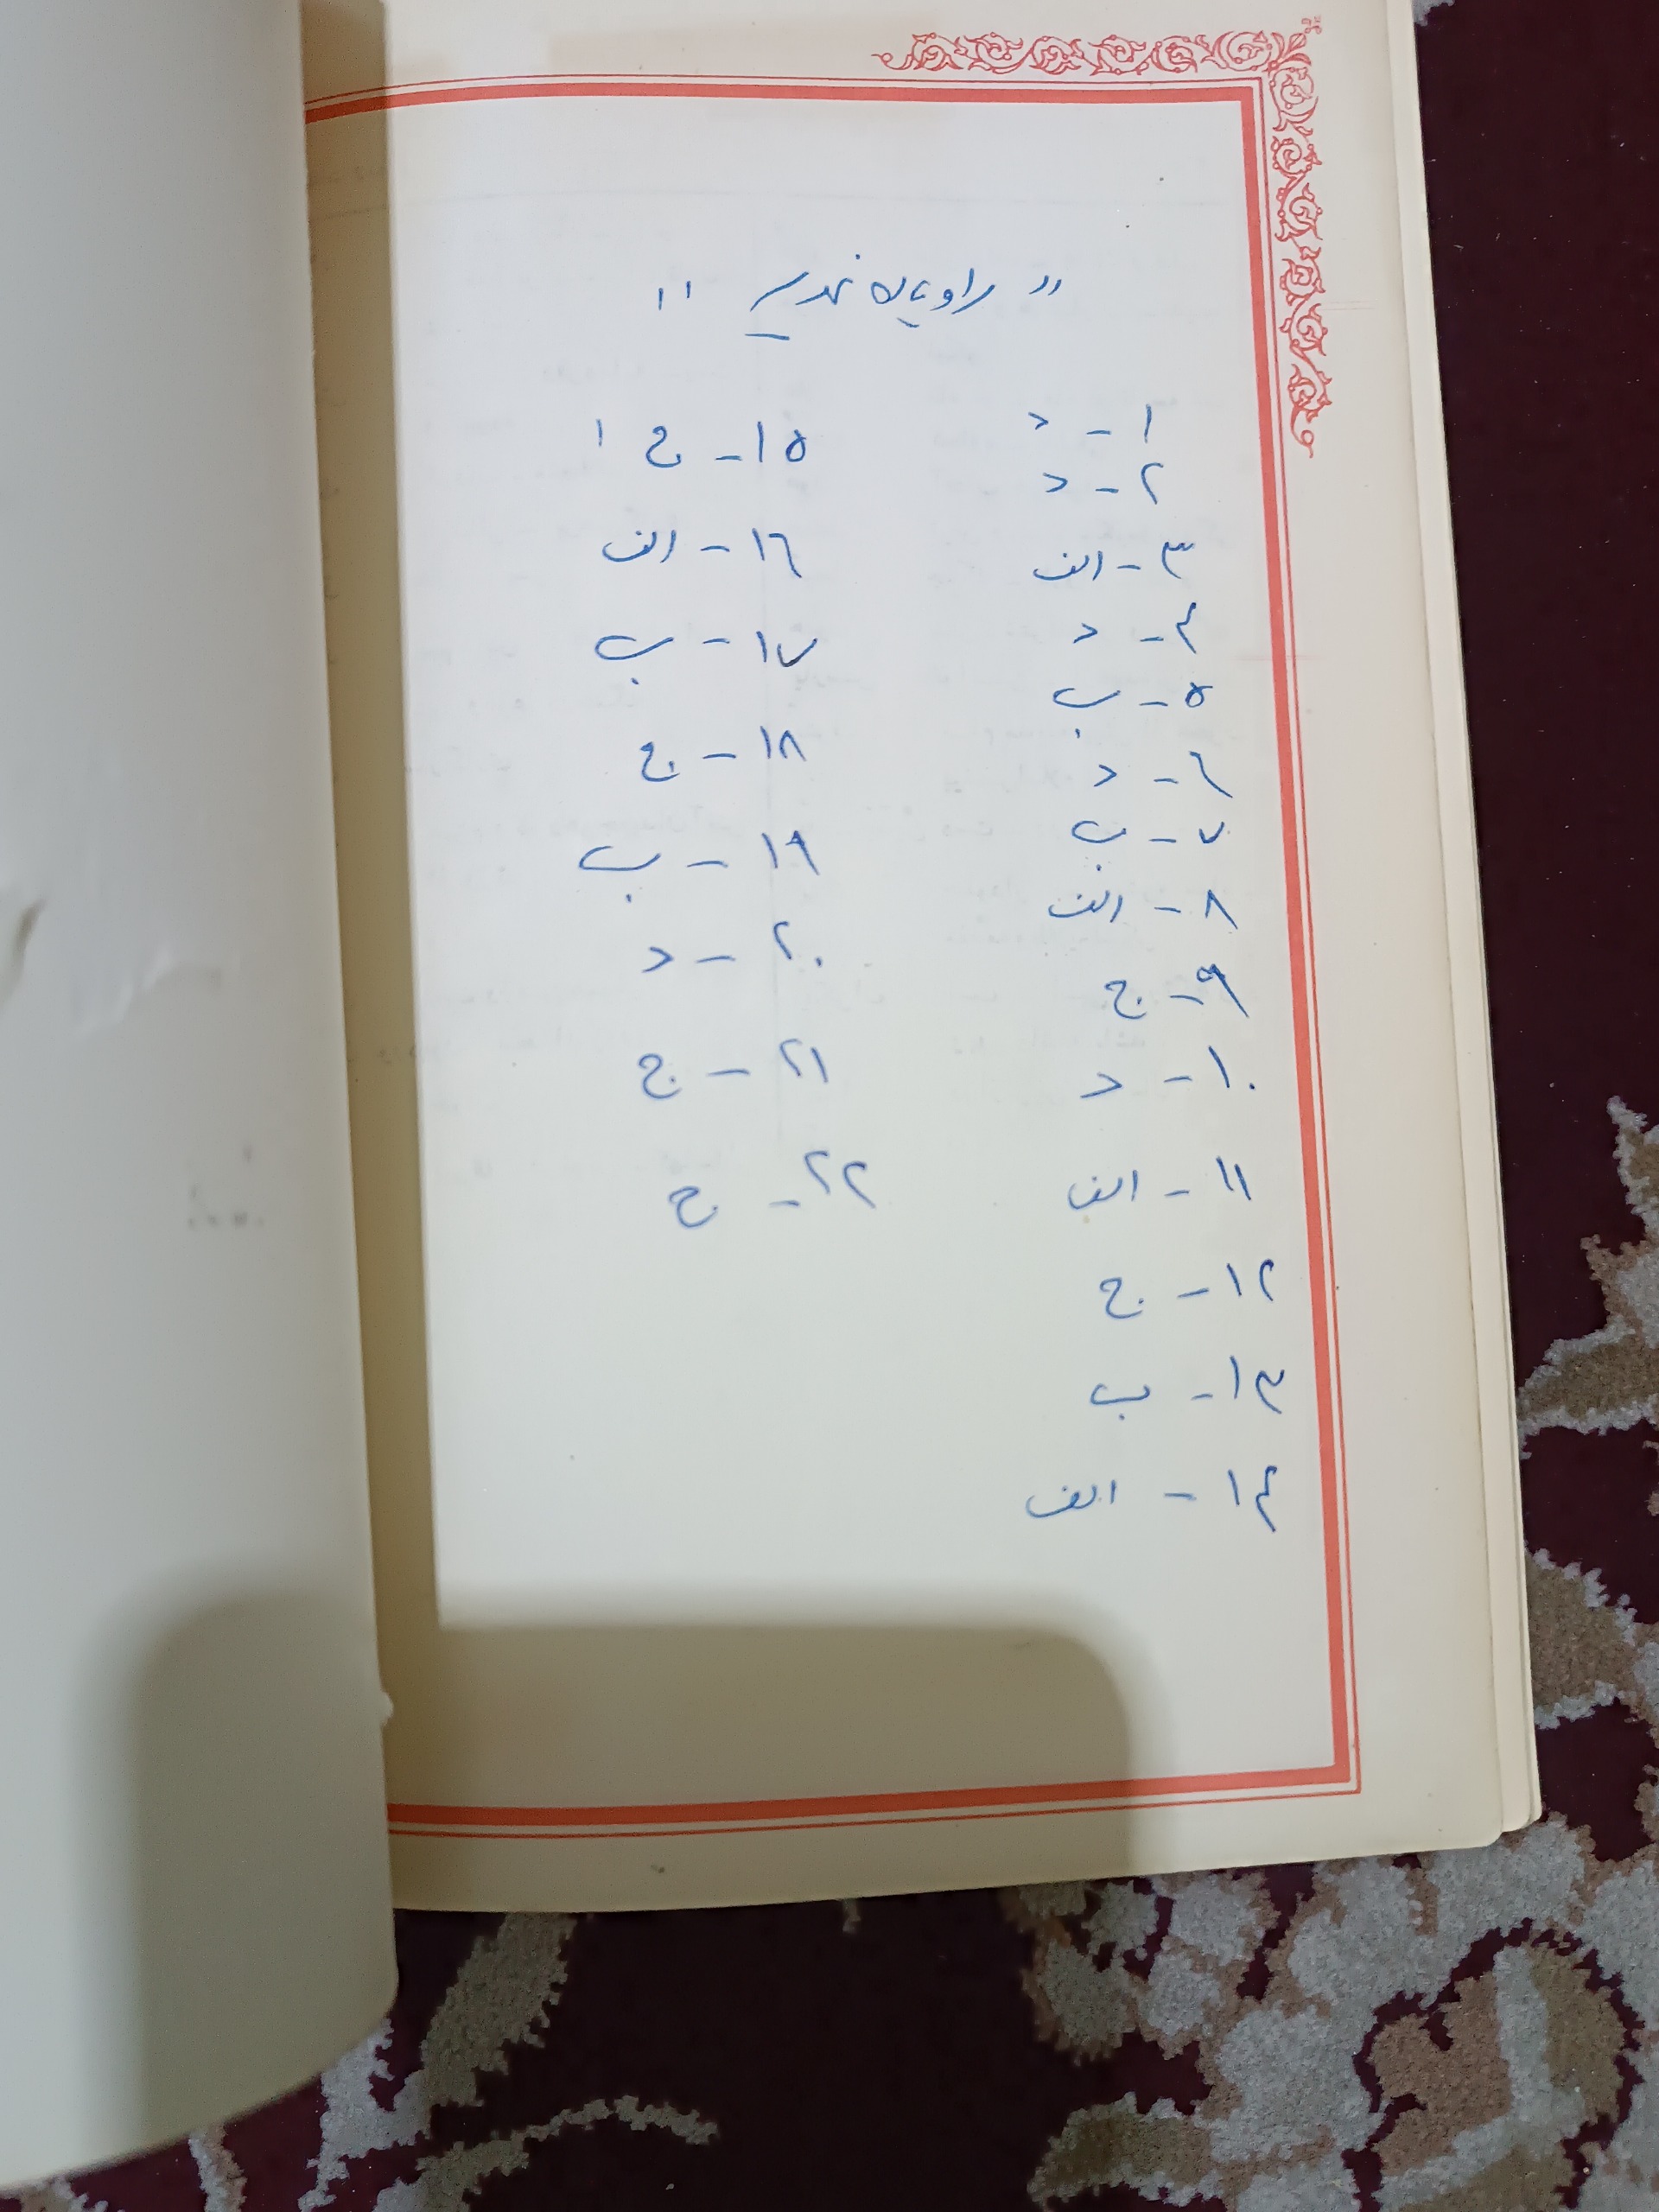 " راویان غدیر "
۱ - د
۲ - د
۳ - الف
۴ - د
۵ - ب
۶ - د
۷ - ب
۸ - الف
۹ - ج
۱۰ - د
۱۱ - الف
۱۲ - ج
۱۳ - ب
۱۴ - الف
۱۵ - ج
۱۶ - الف
۱۷ - ب
۱۸ - ج
۱۹ - ب
۲۰ - د
۲۱ - ج
۲۲ - ج